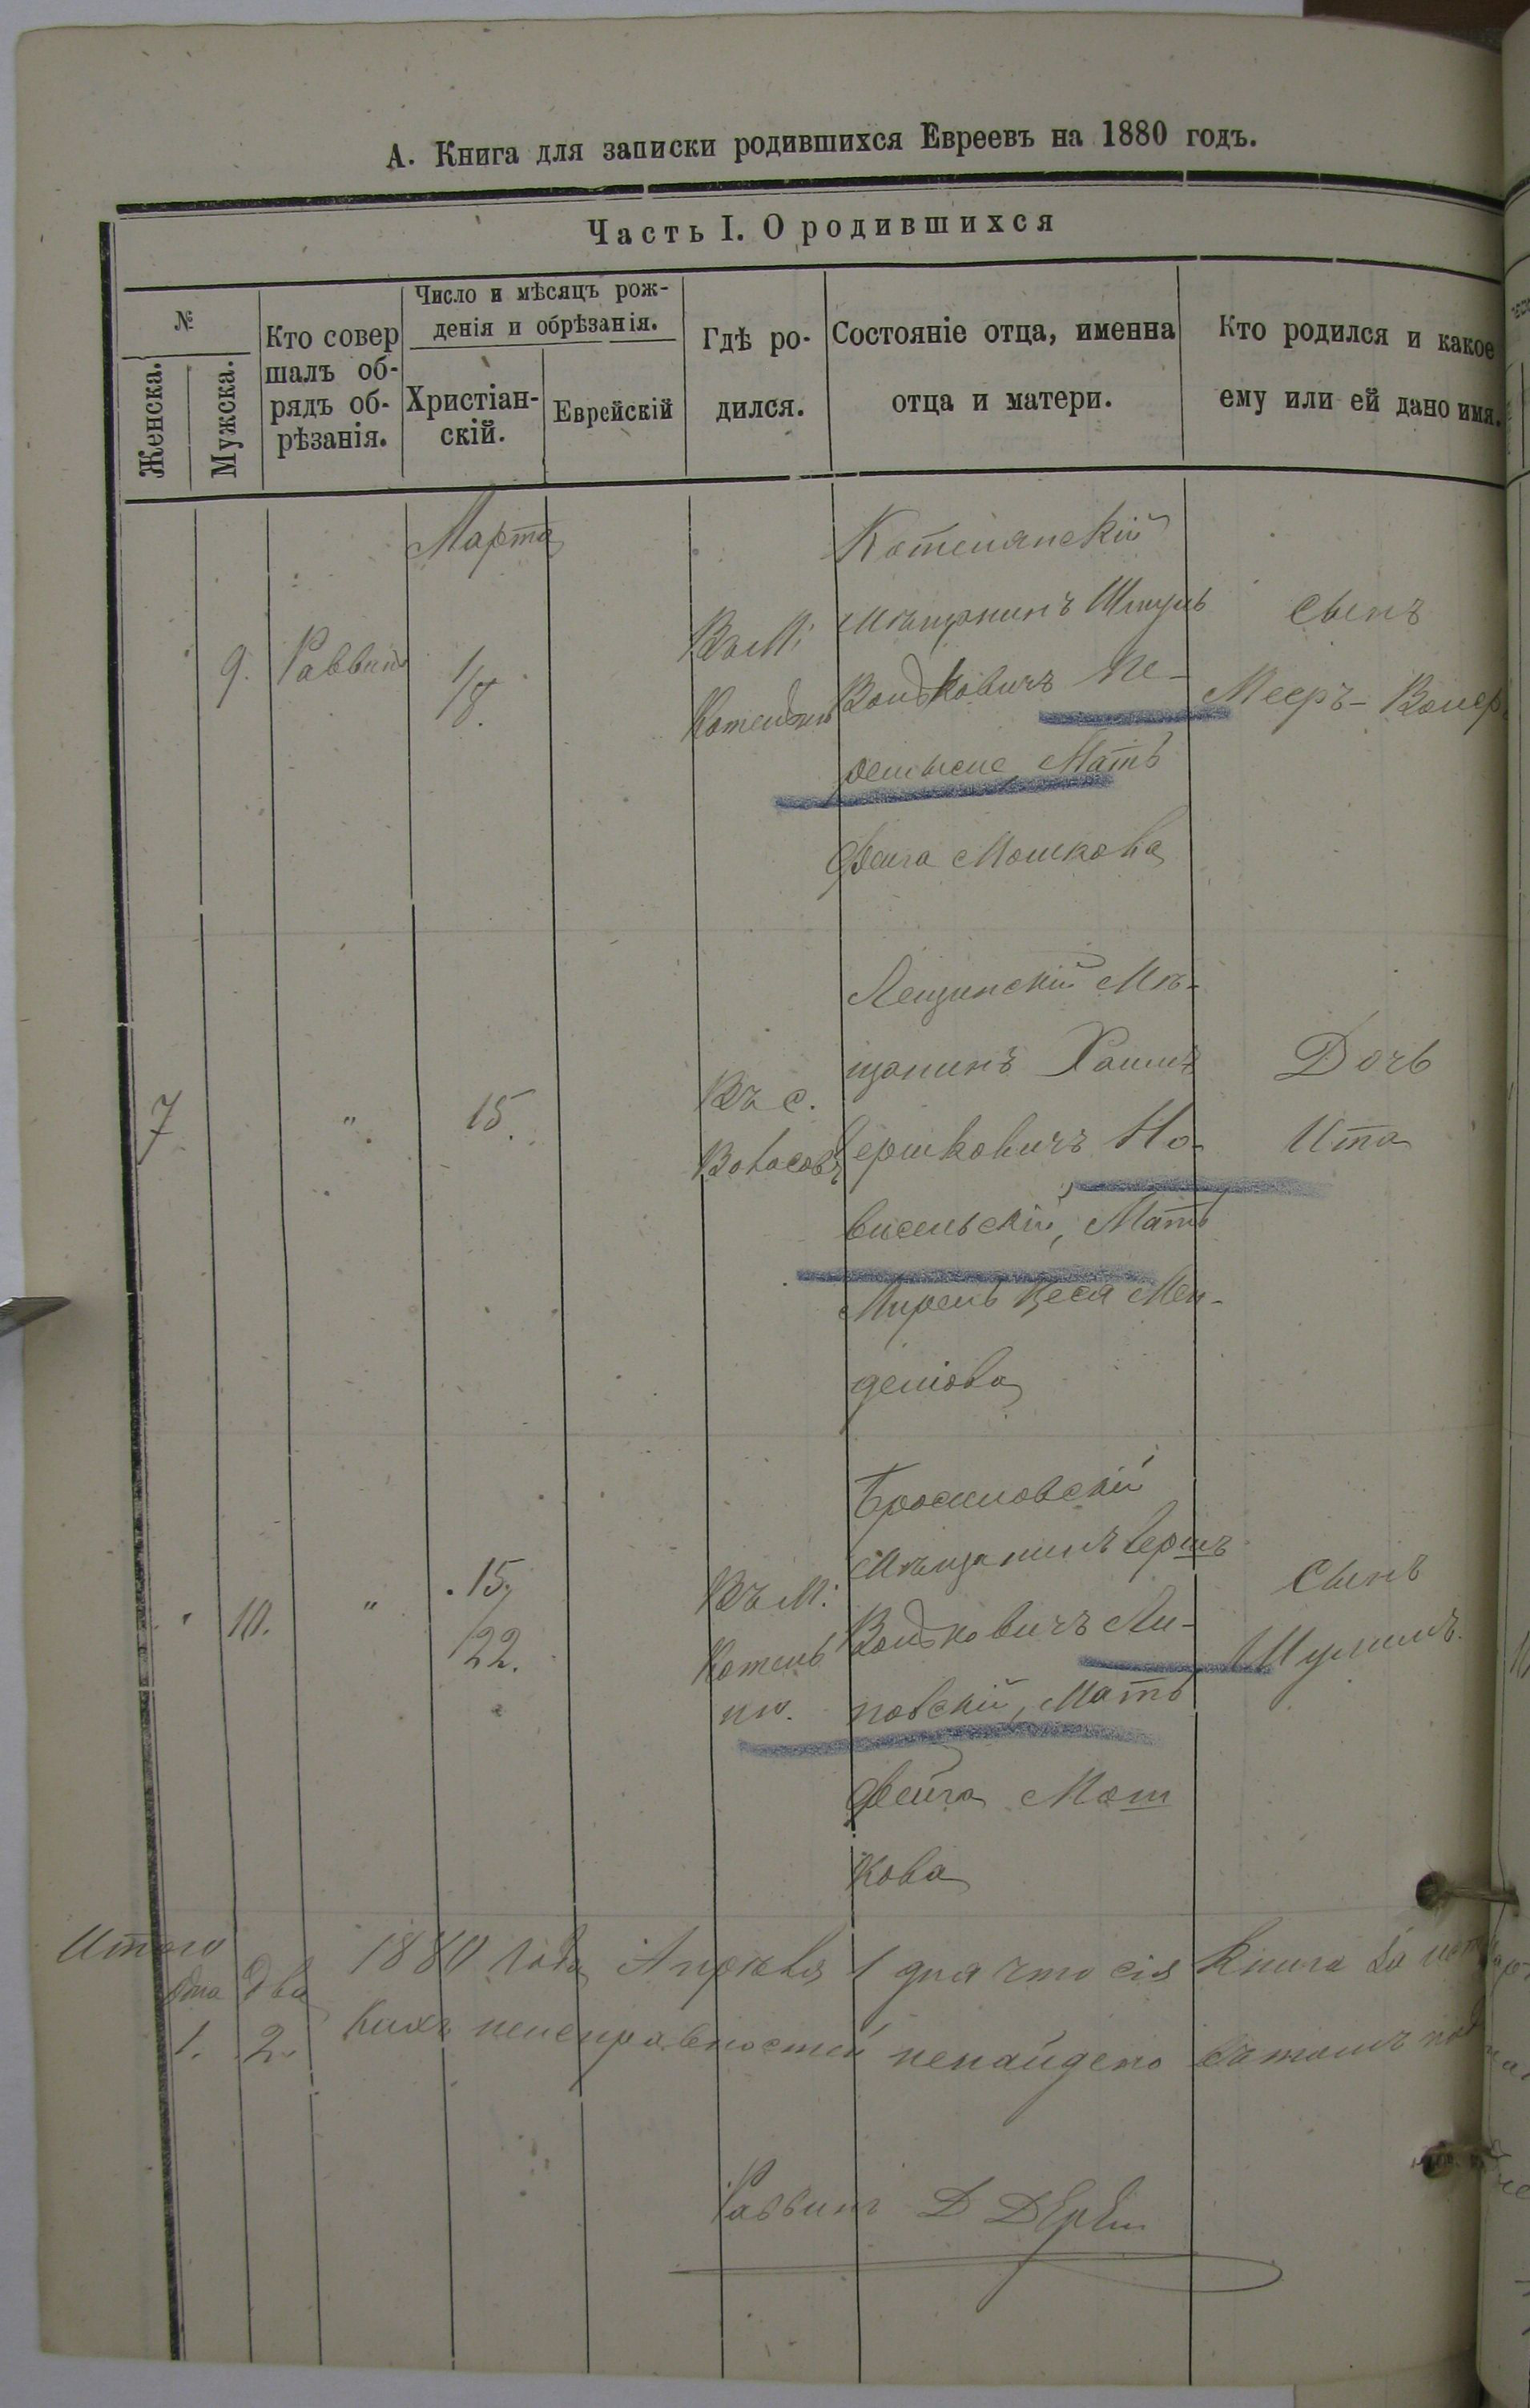 А. Книга для записки родившихся Евреевъ на 1880 годъ.
Часть I. О родившихся
№
Женска.
Мужска.
Кто совер
шалъ об-
рядъ об-
рѣзанія.
Число и мѣсяцъ рож-
денія и обрѣзанія.
Христіан-
скій.
Еврейскій
Гдѣ ро-
дился.
Состояніе отца, именна
отца и матери.
Кто родился и какое
ему или ей дано имя.
Марта
9.
Раввинъ
1/8.
Въ М.
Котельнѣ
Котелянскій
мѣщанинъ Шмуль
Вольковичъ
Мать
Фейга Мошкова
сынъ
Мееръ-
7
"
15.
Въ с.
Волосовѣ
Лещинскій Мѣ-
щанинъ Хаимъ
Гершковичъ Но-
висельскій, Мать
Мирель Песя Мен-
делiова
Дочь
Ита
10.
"
15/22.
Въ М.
Котель
нѣ.
Брусиловскій
Мѣщанинъ Гершъ
Вольковичъ Ли-
повскій, Мать
Фейга Мош
кова
Сынъ
Шулимъ.
Итого
одна два
1. 2.
1880 года Апрѣля 1 дня что сія книга
никакихъ неисправностей ненайдено въ томъ
Раввинъ Д